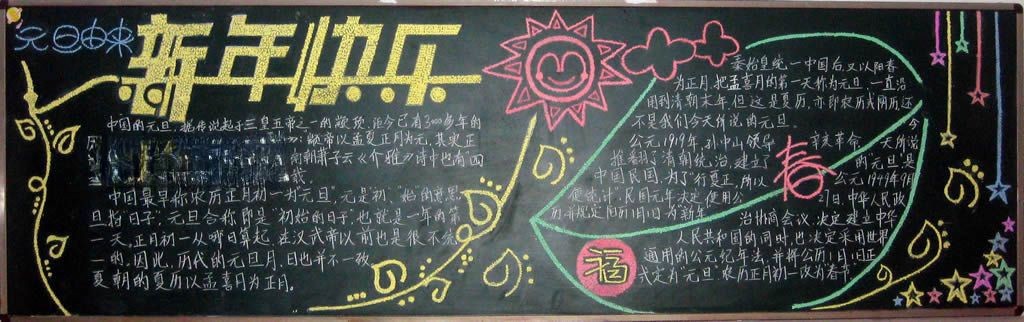 元旦由来
新年快乐
中国的元旦,据传说起于三皇五帝之一的颛顼,距今已有3000多年的
颛帝以孟夏正月为元,其实正
南朝萧子云《介雅》诗中也有四
载
中国最早称农历正月初一为"元旦",元是"初"、"始"的意思
旦指"日子",元旦合称即是"初始的日子",也就是一年的第
一天,正月初一从哪日算起,在汉武帝以前也是很不统
一的,因此,历代的元旦月、日也并不一致
夏朝的夏历以孟喜月为正月。
秦始皇统一中国后,又以阳春
为正月,把孟喜月的第一天称为元旦,一直沿
用到清朝末年,但这是夏历,亦即农历或阴历还
不是我们今天所说的元旦。
公元1919年,孙中山领导
推翻了清朝统治,建立了
中国民国,为了"行夏正,所以
便统计",民国元年决定使用公
历并规定阳历1月1日为新年
春
今
辛亥革命 天所说
的"元旦"是
公元1949年9月
27日,中华人民政
治协商会议,决定建立中华
人民共和国的同时,也决定采用世界
通用的公元纪年法,并将公历1月1日正
式定为"元旦",农历正月初一改为春节
福